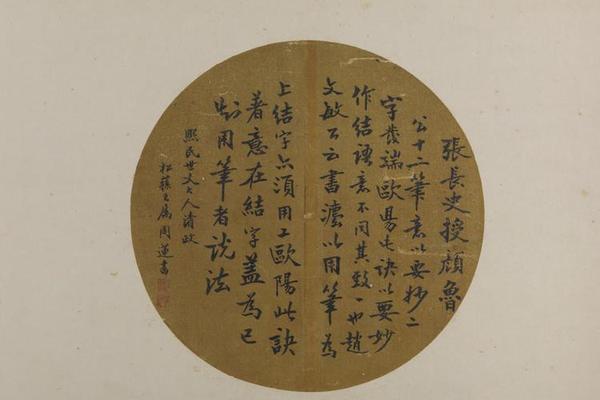 張長史授顏魯
公十二筆意以要妙二
字發端歐陽此訣以要妙
作結語意不同其致一也趙
文敏公云書灋以用筆為
上結字亦須用工歐陽此訣
著意在結字蓋為已
知用筆者說法
熙民世丈大人清政
周蓮書